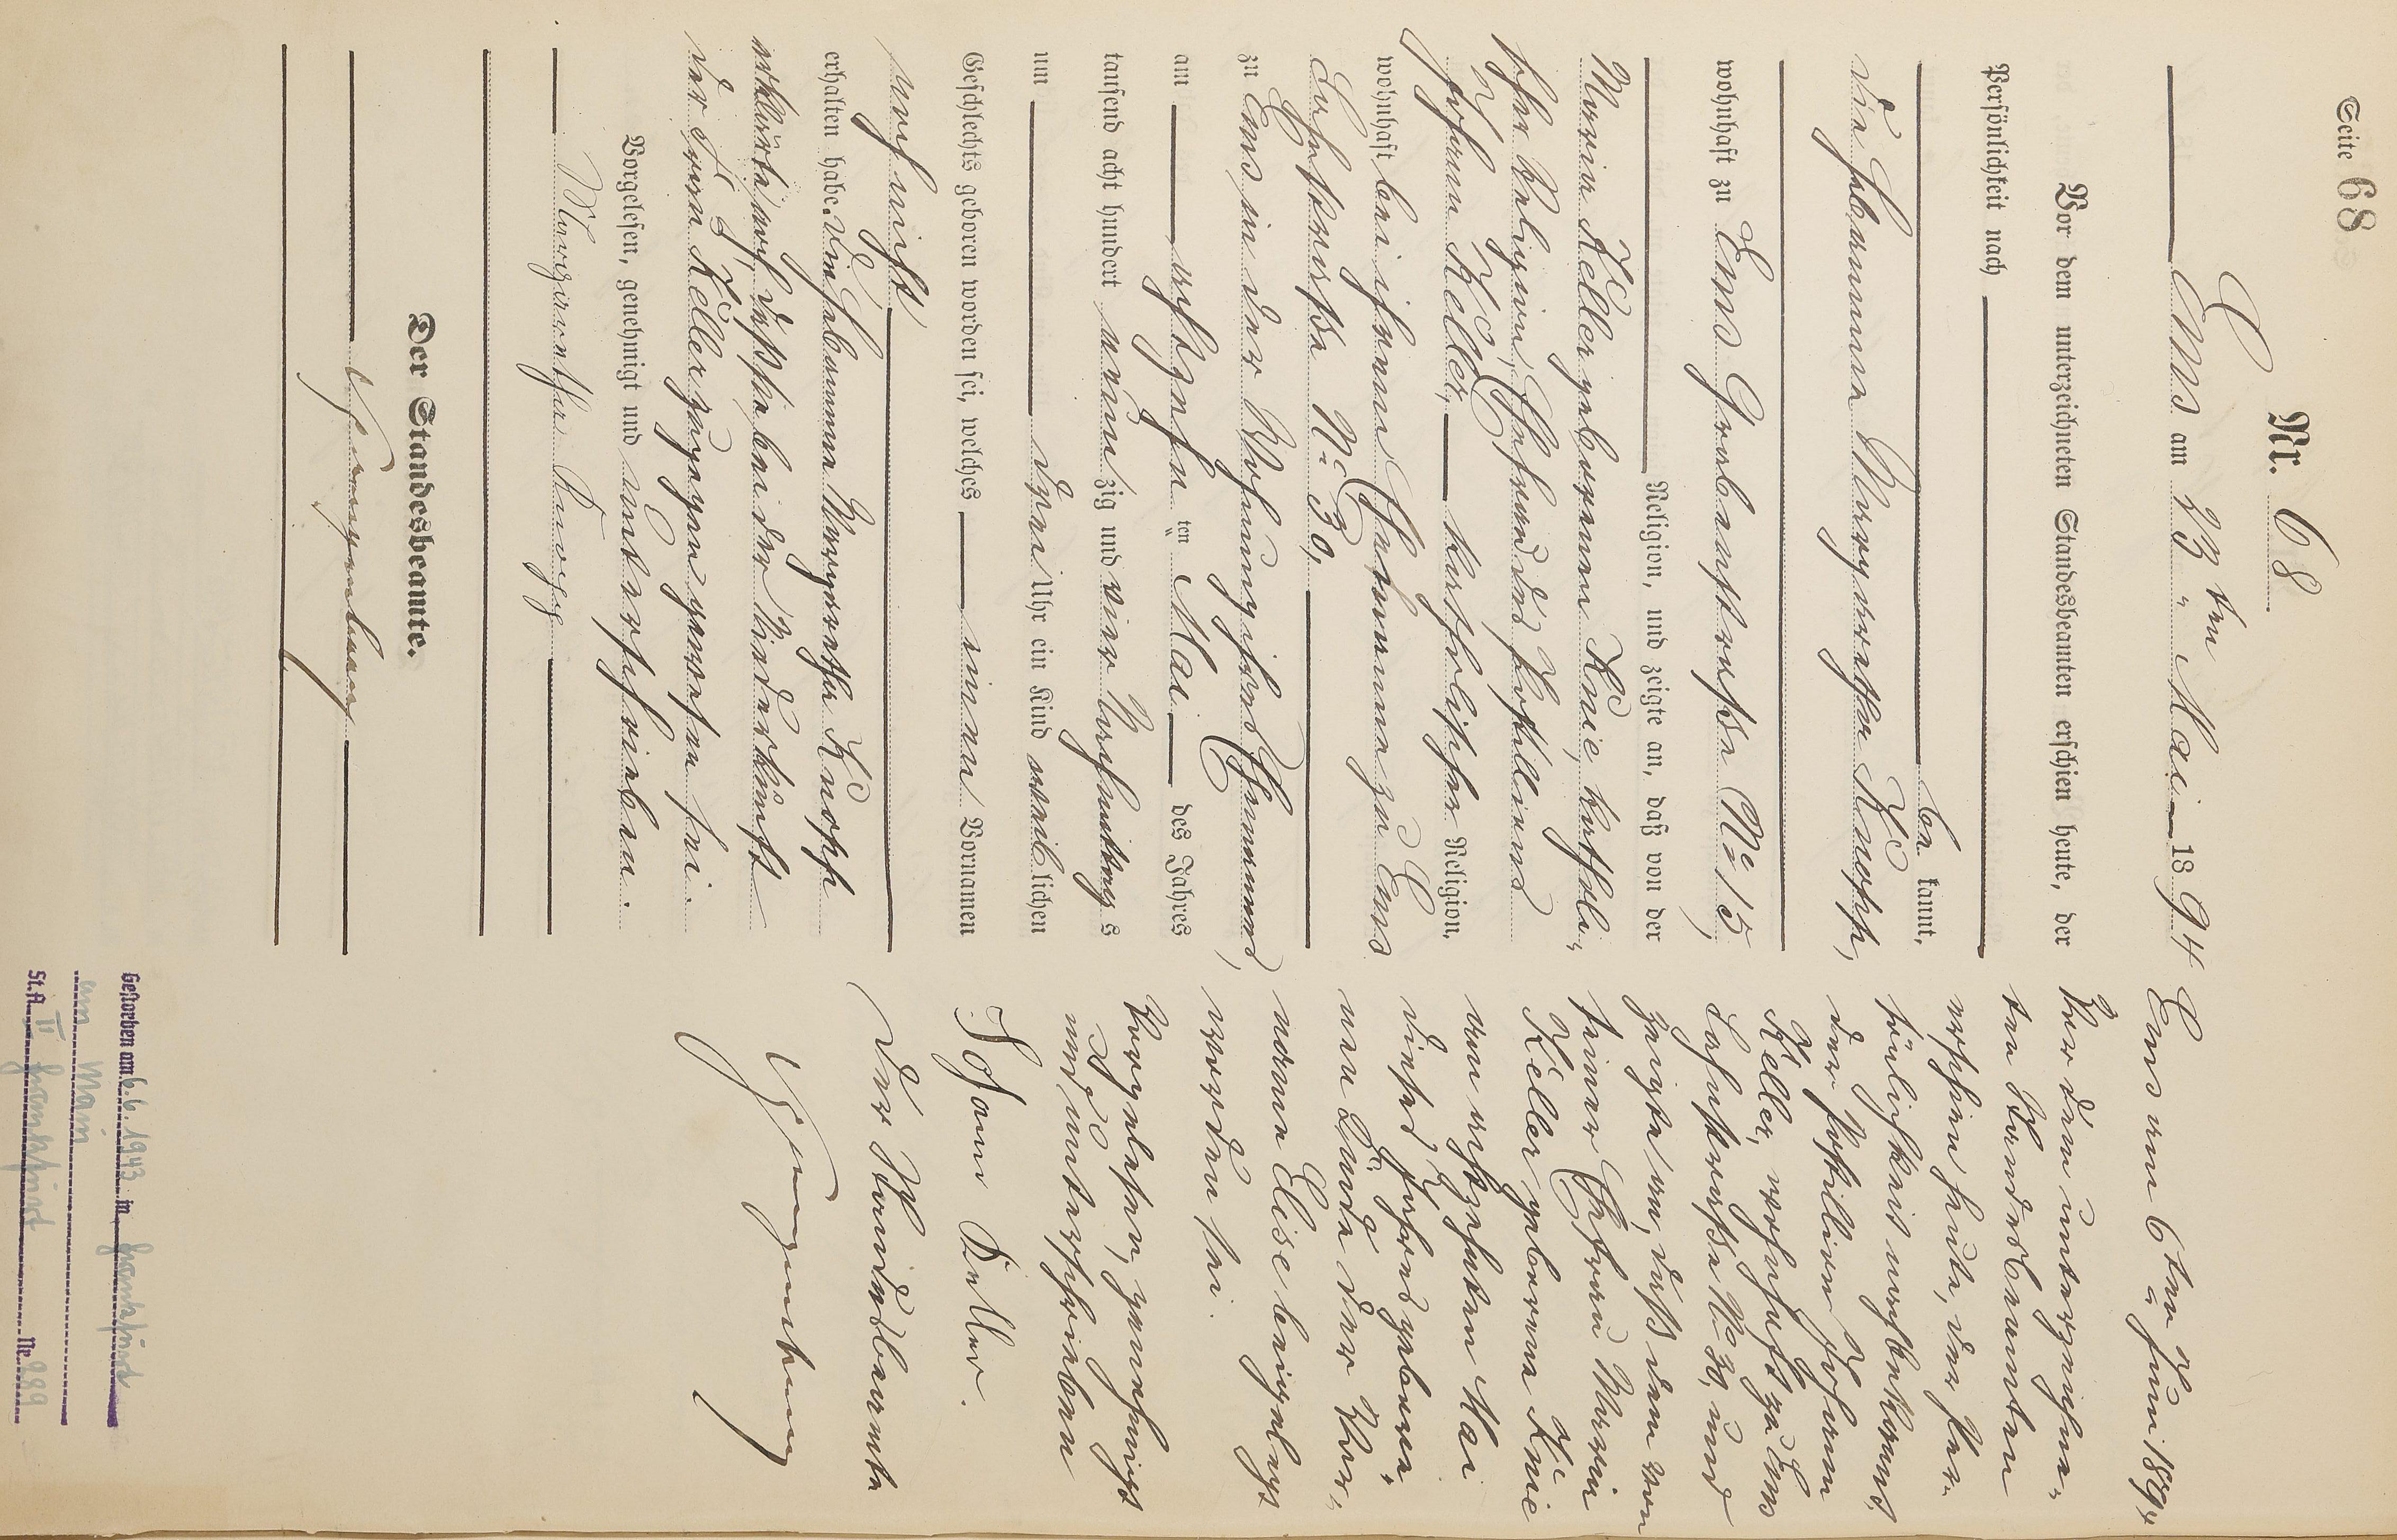 Seite 68
Nr. 68
Ems am 23ten Mai 1894
Vor dem unterzeichneten Standesbeamten erschien heute, der
Persönlichkeit nach
be kannt,
die Hebamme Margaretha Knopp,
wohnhaft zu Ems Grabenstraße No 15,
Religion, und zeigte an, daß von der
Maria Keller geborenen Knie, katholi-
scher Religion, Ehefrau des Postillions
Johann Keller, katholischer Religion,
wohnhaft bei ihrem Ehemanne zu Ems
Lahnstraße No 30,
zu Ems in der Wohnung ihres Ehemannes,
am achtzehn ten Mai des Jahres
tausend acht hundert neun zig und vier Nachmittag s
um drei Uhr ein Kind weib lichen
Geschlechts geboren worden sei, welches einen Vornamen
noch nicht
erhalten habe. Die Hebamme Margaretha Knopp
erklärte auch, daß sie bei der Niederkunft
der Frau Keller zugegen gewesen sei.
Vorgelesen, genehmigt und unterschrieben.
Margaretha Knopp
Der Standesbeamte.
Ems am 6ten Juni 1894
Vor dem unterzeichne-
ten Standesbeamten
erschien heute, der Per-
sönlichkeit nach bekannt,
der Postillion Johann
Keller, wohnhaft zu Ems
Lahnstraße No 30, und
zeigte an, daß dem von
seiner Ehefrau Maria
Keller geborene Knie
am achtzehnten Mai
dieses Jahres gebore-
nen Kinde der Vor-
name Elise beigelegt
worden sei.
Vorgelesen, genehmigt
und unterschrieben
Johann Keller.
Der Standesbeamte
Gestorben am 6.6.1943 in Frankfurt
am Main
St.A. II Frankfurt Nr. 989